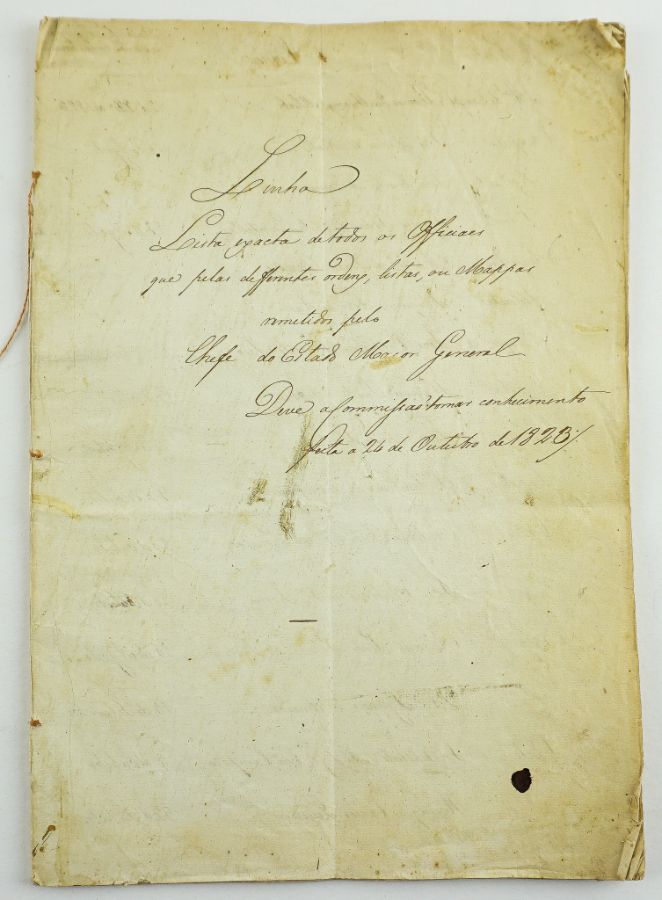 Linha
Lista exacta de todos os Officiaes
que pelas differentes ordens, listas, ou Mappas
remetidos pelo
Chefe do Estado Maior General
Deve a Commissaõ tomar conhecimento
feita a 26 de Outubro de 1823